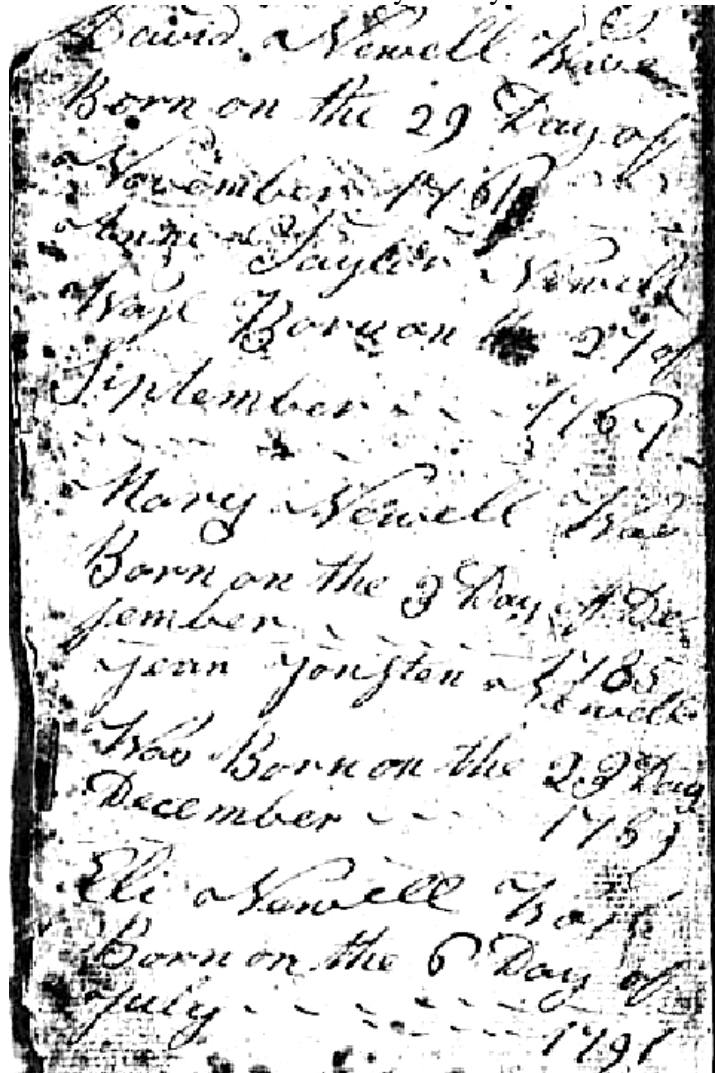 David Newell Was
Born on the 29 Day of
November
Taylor Newell
Was Born on the 27 of
Siptember
Mary Newell Was
Born on the 3 Day of De
sember
1785
Jean Jonsten Newell
Was Born on the 23 Day
December
Eli Newell Was
Born on the 6 Day of
July 1791